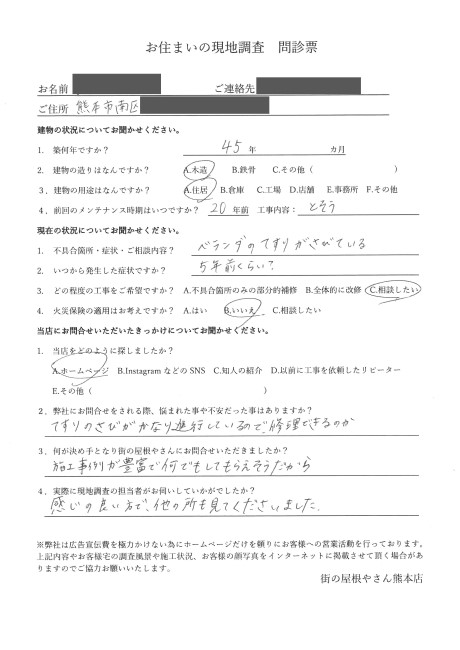 お住まいの現地調査　問診票
お名前　ご連絡先
ご住所　熊本市南区
建物の状況についてお聞かせください。
1.　築何年ですか？　45 年　カ月
2.　建物の造りはなんですか？　A.木造　B.鉄骨　C.その他（　）
3，建物の用途はなんですか？　A.住居　B.倉庫　C.工場　D.店舗　E.事務所　F.その他
4，前回のメンテナンス時期はいつですか？　20 年前　工事内容：　とそう
現在の状況についてお聞かせください。
1.　不具合箇所・症状・ご相談内容？　ベランダのてすりがさびている
2.　いつから発生した症状ですか？　5年前くらい？
3.　どの程度の工事をご希望ですか？　A.不具合箇所のみの部分的補修　B.全体的に改修　C.相談したい
4.　火災保険の適用はお考えですか？　A.はい　B.いいえ　C.相談したい
当店にお問合せいただいたきっかけについてお聞かせください。
1.　当店をどのように探しましたか？
A.ホームページ　B.Instagram などの SNS　C.知人の紹介　D.以前に工事を依頼したリピーター
E.その他（　）
2．弊社にお問合せをされる際、悩まれた事や不安だった事はありますか？
てすりのさびがかなり進行しているので修理できるのか
3．何が決め手となり街の屋根やさんにお問合せいただきましたか？
施工事例が豊富で何でもしてもらえそうだから
4．実際に現地調査の担当者がお伺いしていかがでしたか？
感じの良い方で、他の所も見てくださいました。
※弊社は広告宣伝費を極力かけない為にホームページだけを頼りにお客様への営業活動を行っております。
上記内容やお客様宅の調査風景や施工状況、お客様の顔写真をインターネットに掲載させて頂く場合があ
りますのでご協力お願いいたします。
街の屋根やさん熊本店